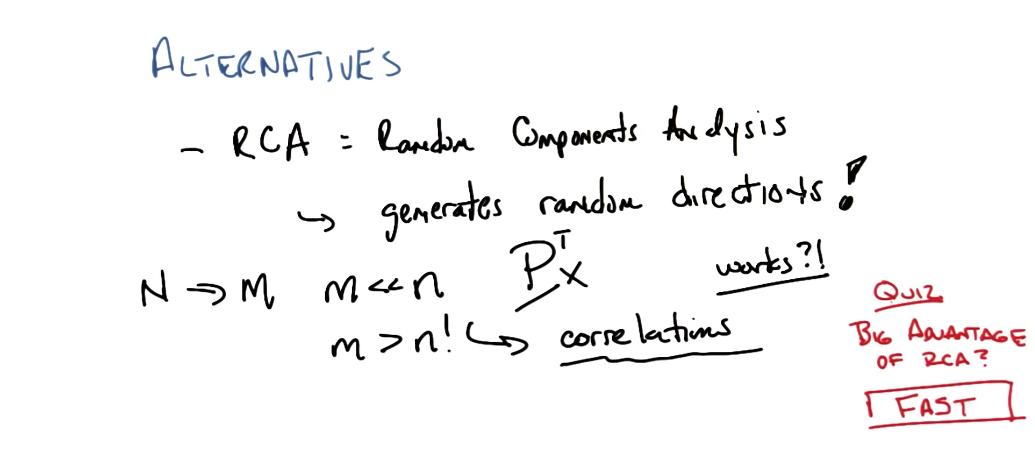 ALTERNATIVES
- RCA = Random Components Analysis
↳ generates random directions!
N ⇒ M m << n PᵀX works?!
m > n! ↪ correlations
QUIZ
BIG ADVANTAGE
OF RCA?
FAST